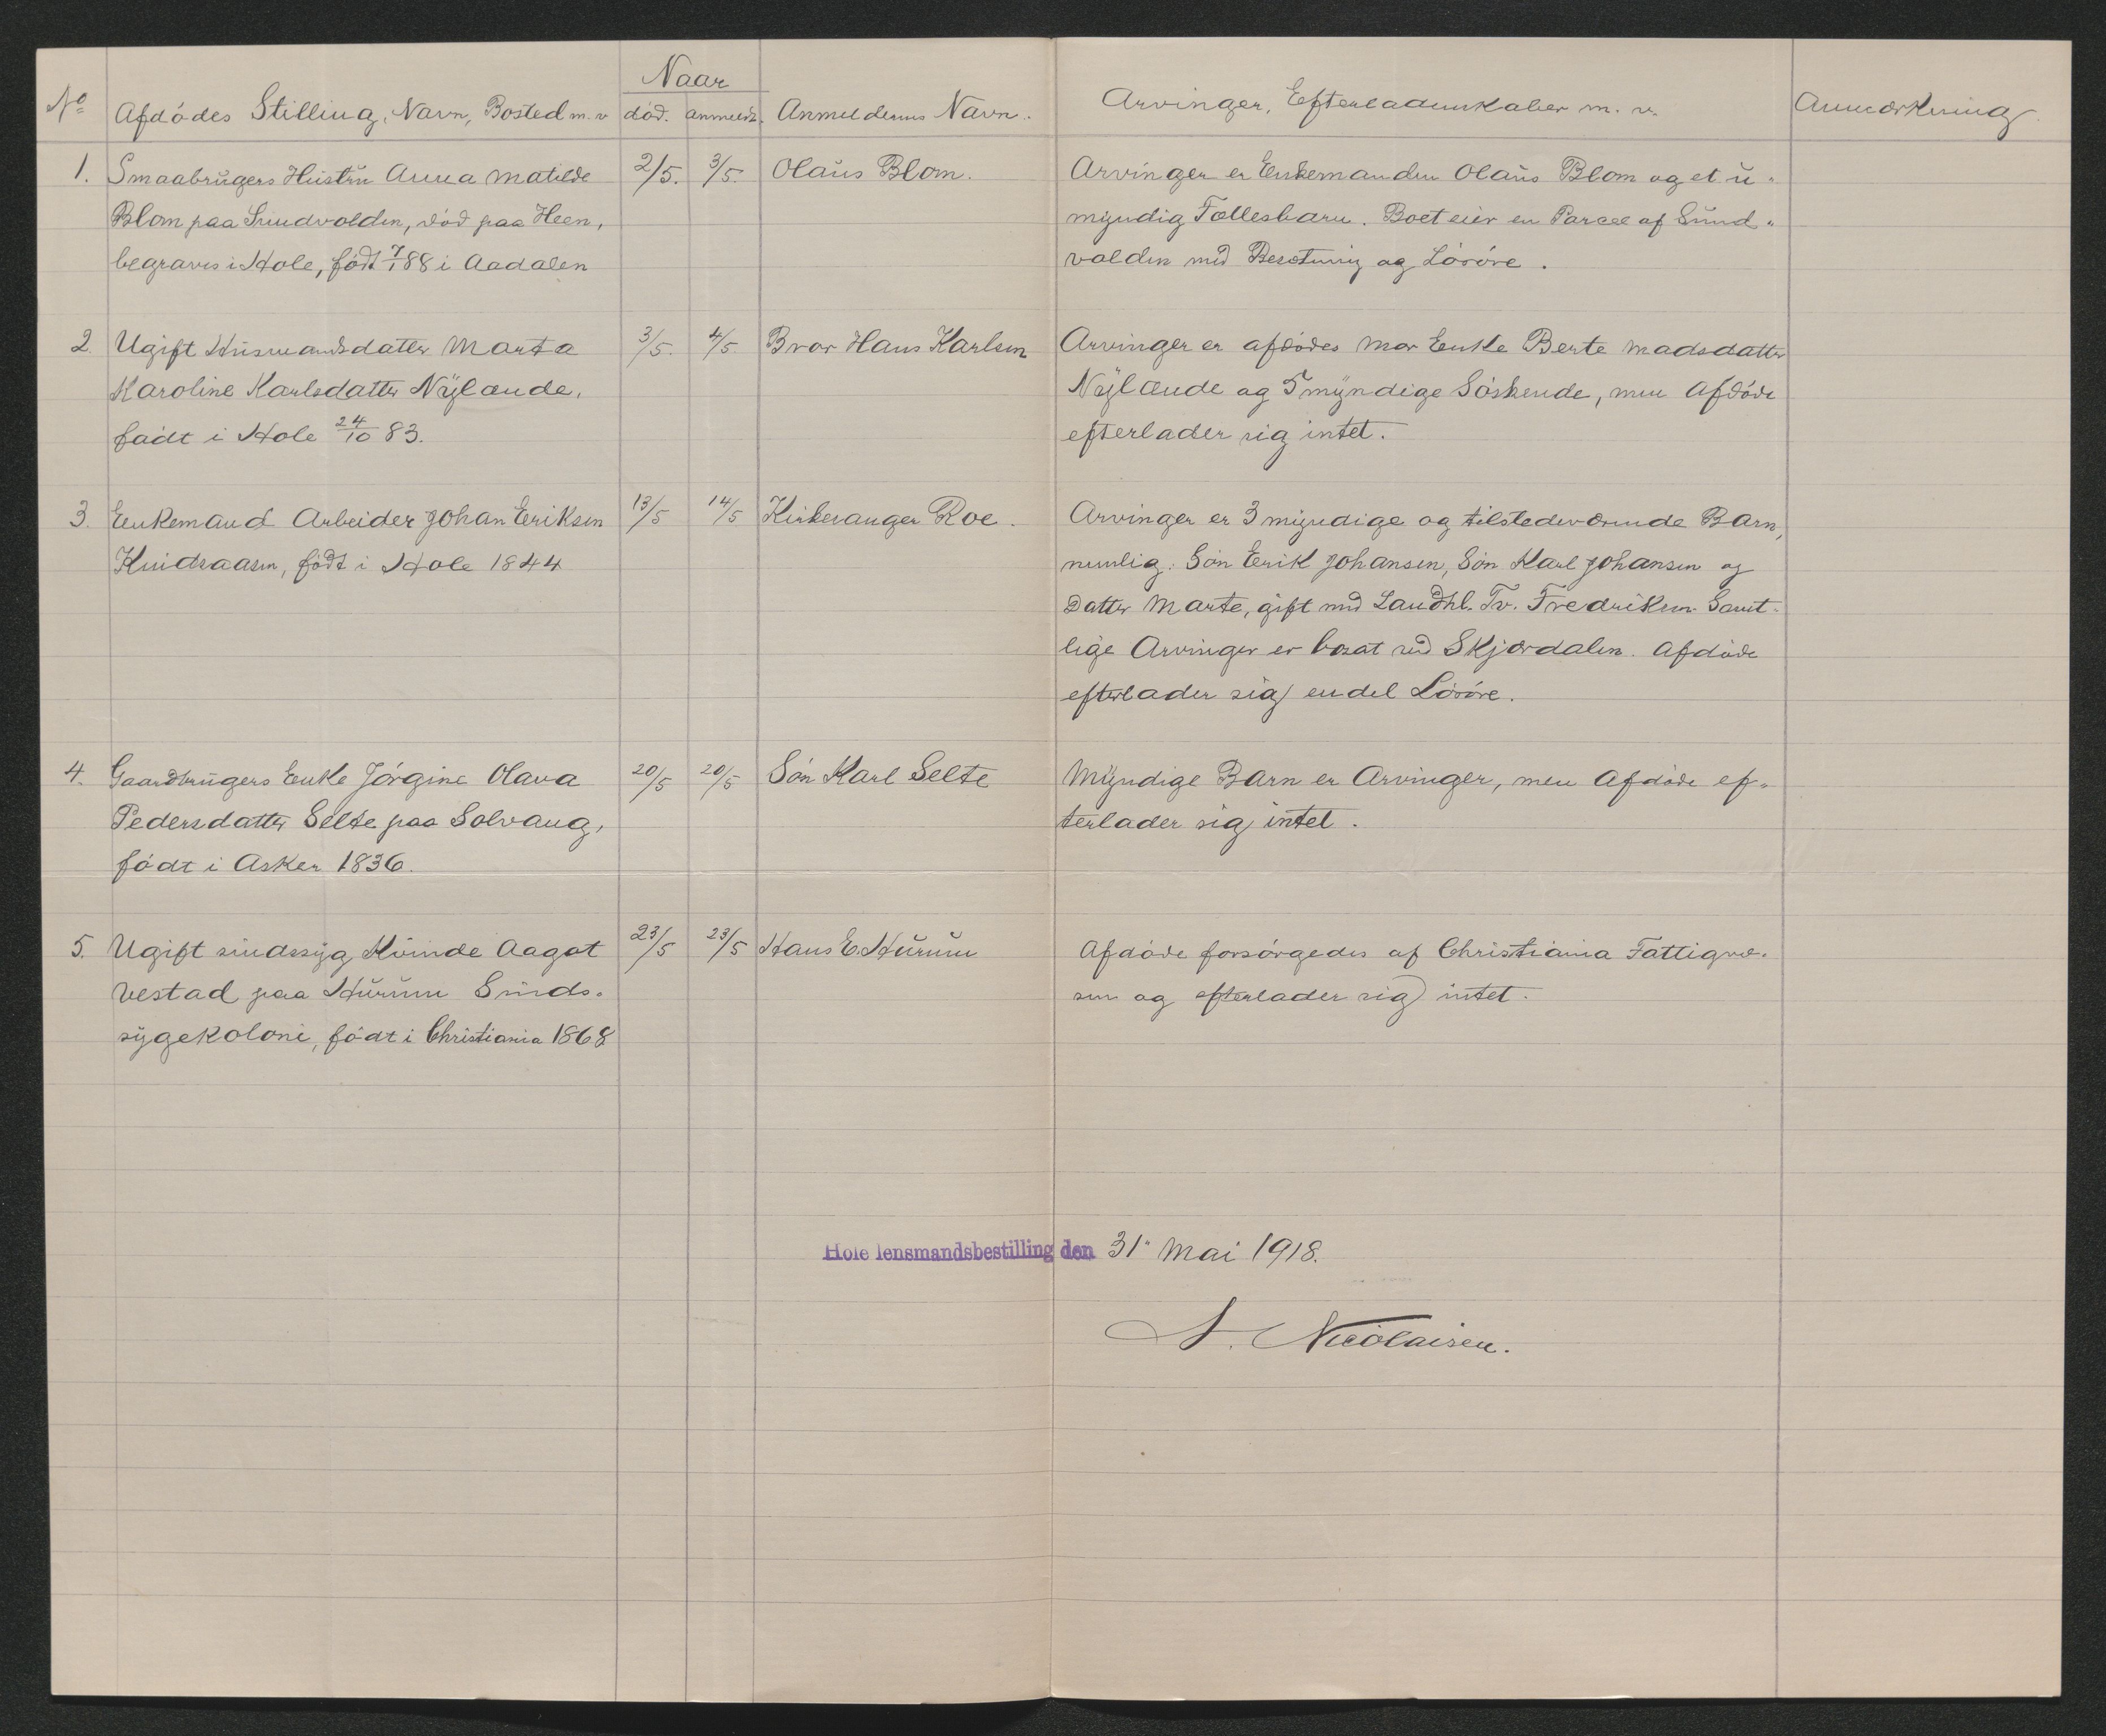 Naar
No Afdödes Stilling, Navn, Bosted m. v död. anmeldt. Anmelderens Navn. Arvinger, Efterladenskaber m. v. Anmærkning
1. Smaabrugers Hustru Anna Matilde 2/5. 3/5. Olaus Blom. Arvinger er Enkemanden Olaus Blom og et u-
Blom paa Sundvolden, död paa Heen, myndig Fællesbarn. Boet eier en Parcel af Sund-
begraves i Hole, födt 7/1 88 i Aadalen volden med Besætning og Lösöre.
2. Ugift Husmandsdatter Marta 3/5. 4/5. Bror Hans Karlsen Arvinger er afdödes Mor Enke Berte Madsdatter
Karoline Karlsdatter Nylænde, Nylænde og 5 myndige Söskende, men Afdöde
födt i Hole 24/10 83. efterlader sig intet.
3. Enkemand Arbeider Johan Eriksen 13/5 14/5 Kirkesanger Roe. Arvinger er 3 myndige og tilstedeværende Barn,
födt i Hole 1844 nemlig: Sön Erik Johansen, Sön Karl Johansen og
Datter Marte, gift med Landhl. Tv. Fredriksen. Samt-
lige Arvinger er bosat ved Skjærdalen. Afdöde
efterlader sig endel Lösöre.
4. Gaardbrugers Enke Jörgine Olava 20/5 20/5 Sön Karl Selte Myndige Barn er Arvinger, men Afdöde ef-
Pedersdatter Selte paa Solvang, terlader sig intet.
födt i Asker 1836.
5. Ugift sindssyg Kvinde Aagot 23/5 23/5 Hans E. Hurum Afdöde forsörgedes af Christiania Fattigvæ-
Vestad paa Hurum Sinds- sen og efterlader sig intet.
sygekoloni, födt i Christiania 1868
Hole lensmandsbestilling den 31" Mai 1918.
Nicolaisen.